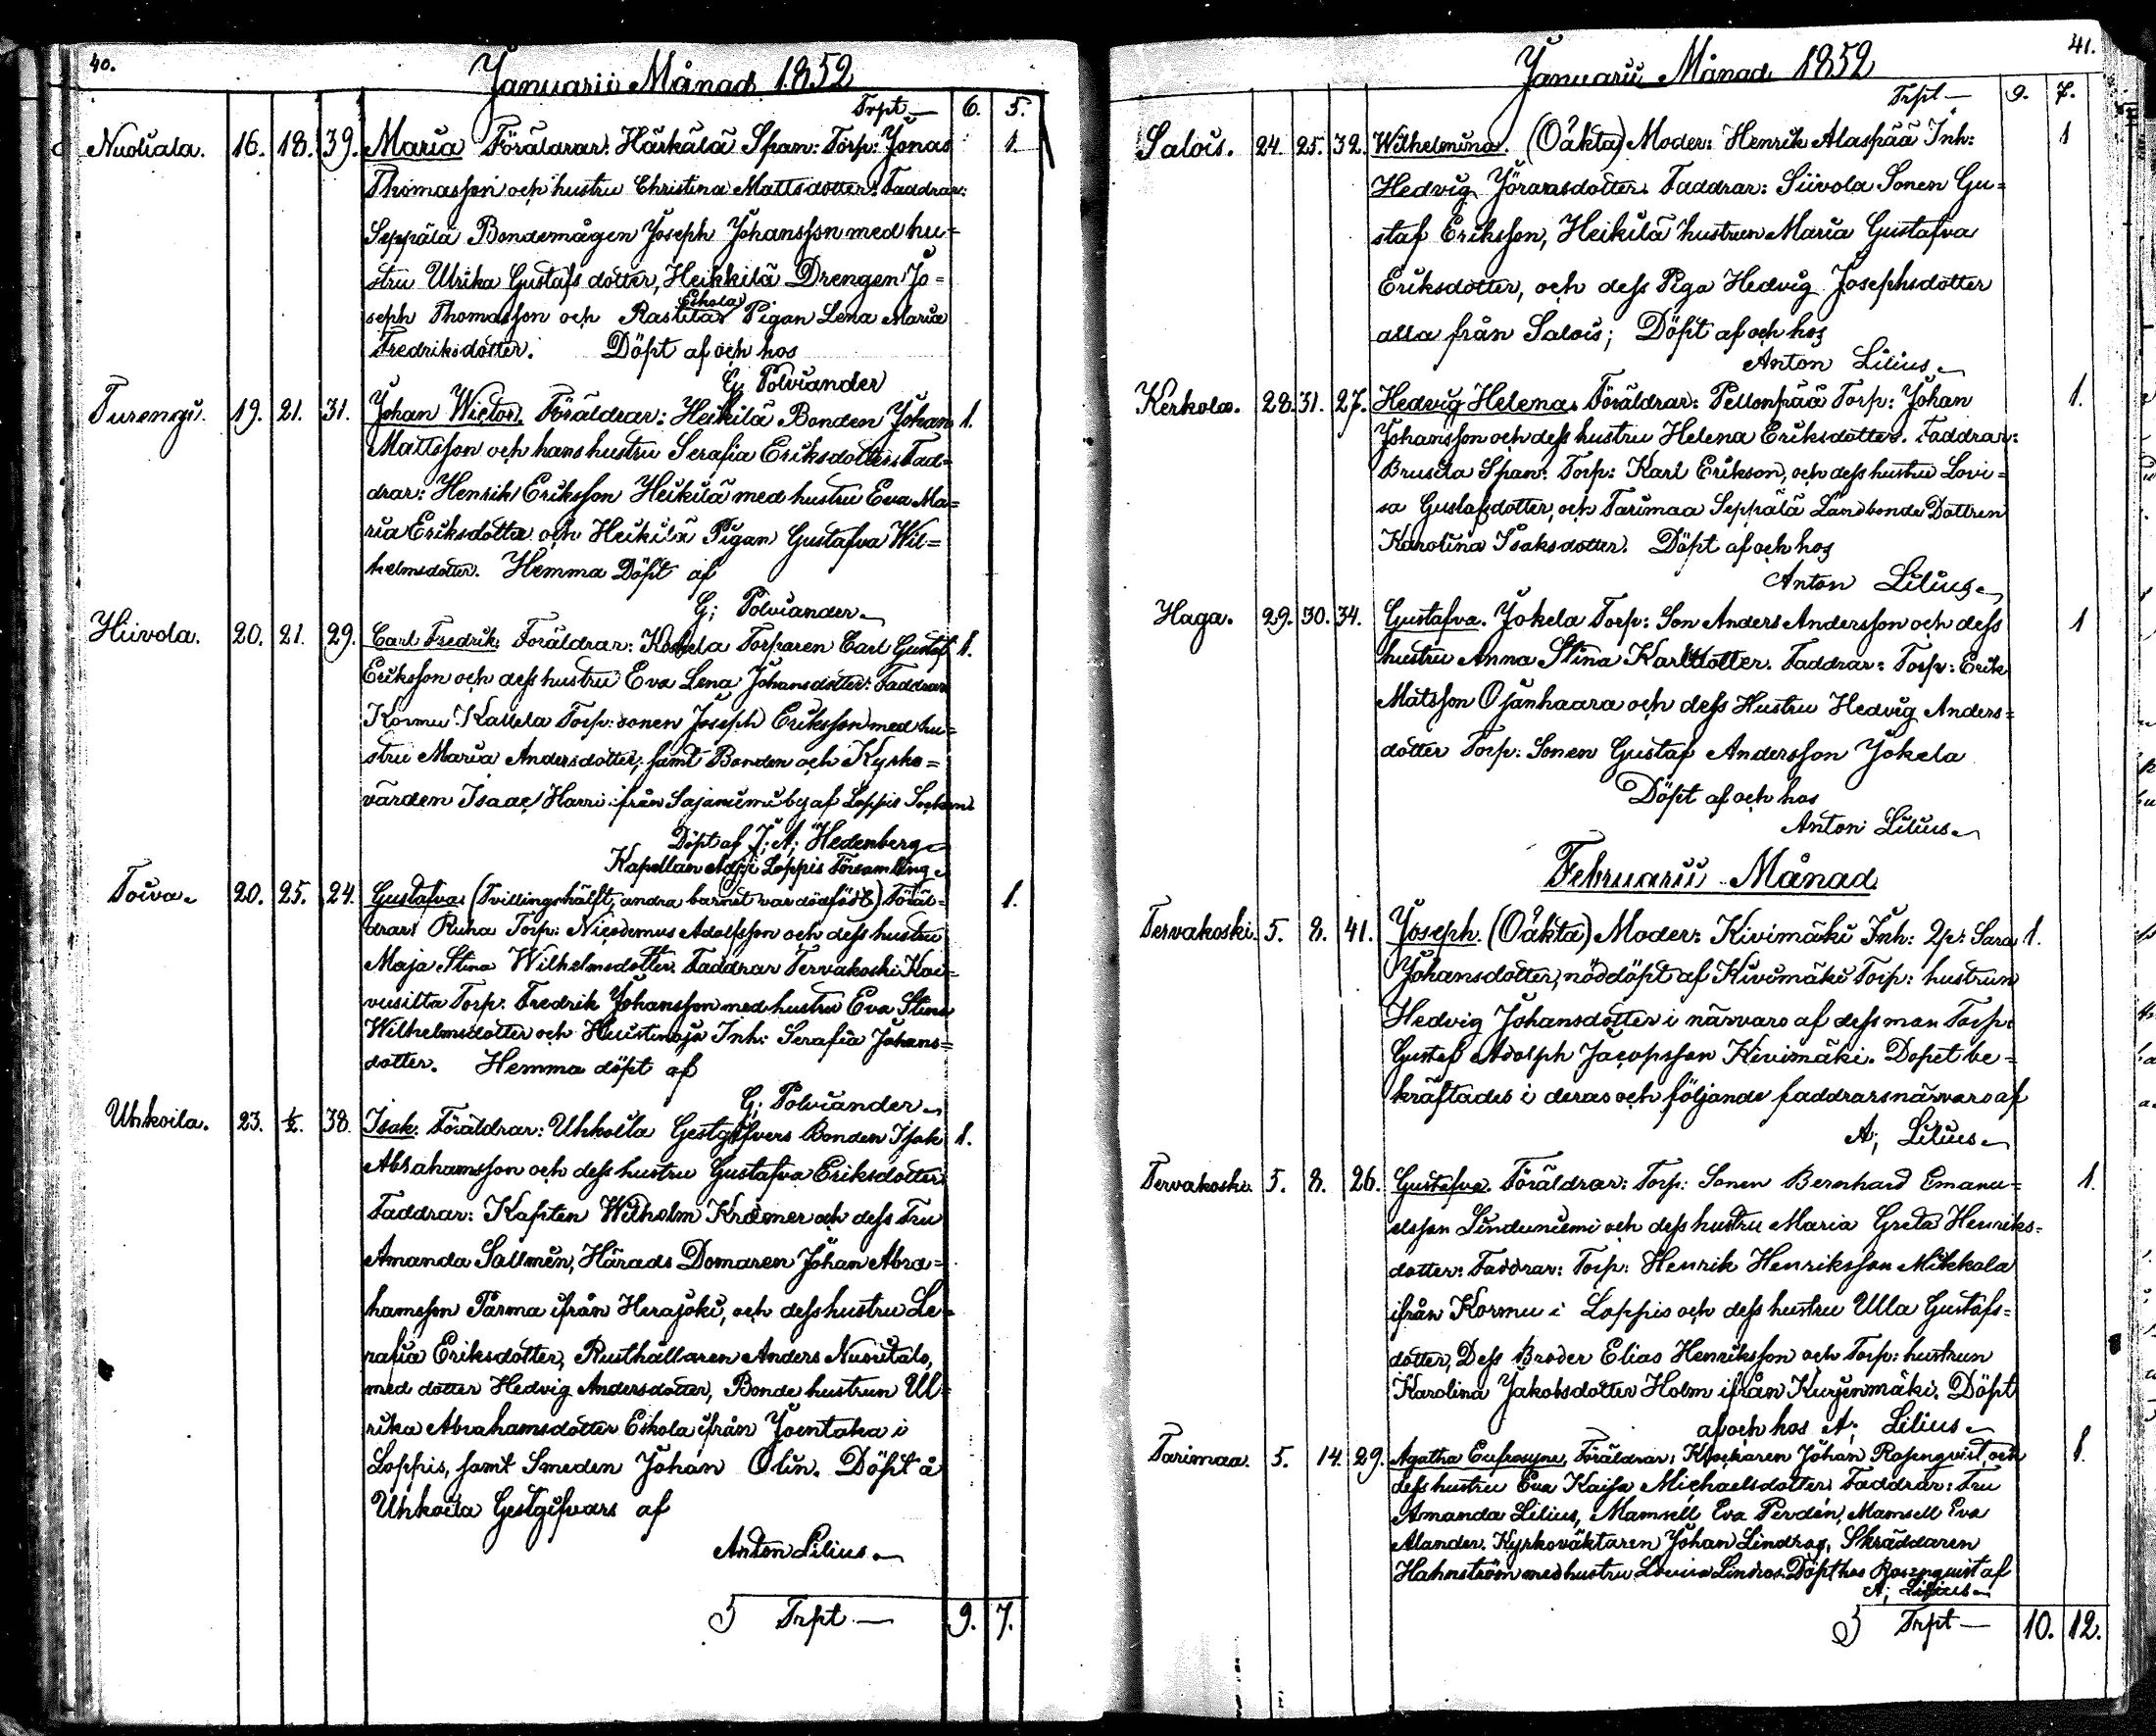 40.
Januarii Månad 1852
Trpt — 6. 5.
Nuoliala. 16. 18. 39. Maria Föräldrar: Härkälä Span: Torp: Jonas 1.
Thomasson och hustru Christina Mattsdotter: Faddrar:
Seppälä Bondemågen Joseph Johansson med hu=
stru Ulrika Gustafs dotter, Heikkilä Drengen Jo=
seph Thomasson och Rastila Eskola Pigan Lena Maria
Fredriksdotter. Döpt af och hos
G Polviander
Turengi. 19. 21. 31. Johan Wictor. Föräldrar: Heikilä Bonden Johan 1.
Mattsson och hans hustru Serafia Eriksdotter. Fad=
drar: Henrik Eriksson Heikilä med hustru Eva Ma=
ria Eriksdotter och Heikilä Pigan Gustafva Wil=
helmsdotter. Hemma Döpt af
G; Polviander
Hiivola. 20. 21. 29. Carl Fredrik. Föräldrar: Torparen Carl Gustaf 1.
Eriksson och dess hustru Eva Lena Johansdotter: Faddrar
Kormu Kallela Torp: sonen Joseph Eriksson med hu=
stru Maria Andersdotter, samt Bonden och Kyrko=
värden Isaac Harri ifrån Sajaniemi by af Loppis Socken
Döpt af J; A; Hedenberg
Kapellan Adj: i Loppis Församling
Toiva. 20. 25. 24. Gustafva (Tvillingshälft, andra barnet var dödfödt) Föräl= 1.
drar: Ruha Torp: Nicodemus Adolfsson och dess hustru
Maja Stina Wilhelmsdotter Faddrar Tervakoski Koi=
vusilta Torp: Fredrik Johansson med hustru Eva Stina
Wilhelmsdotter och Huistinoja Inh: Serafia Johans=
dotter. Hemma döpt af
G; Polviander
Uhkoila. 23. ½. 38. Isak. Föräldrar: Uhkoila Gestgifvers Bonden Isak 1.
Abrahamsson och dess hustru Gustafva Eriksdotter
Faddrar: Kapten Wilhelm Kræmer och dess Fru
Amanda Sallmén, Härads Domaren Johan Abra=
hamsson Pärma ifrån Herajoki, och dess hustru Se=
rafia Eriksdotter, Rusthållaren Anders Nuoritalo,
med dotter Hedvig Andersdotter, Bonde hustrun Ul=
rika Abrahamsdotter Eskola ifrån Joentaka i
Loppis, samt Smeden Johan Olin. Döpt å
Uhkoila Gestgifvars af
Anton Lilius
Trpt — 9. 7.
41.
Januarii Månad 1852
Trpt — 9. 7.
Salois. 24. 25. 32. Wilhelmina. (Oäkta) Moder: Henrik Alaspää Inh: 1
Hedvig Göransdotter. Faddrar: Siivola Sonen Gu=
staf Eriksson, Heikilä hustrun Maria Gustafva
Eriksdotter, och dess Piga Hedvig Josephsdotter
alla från Salois; Döpt af och hos
Anton Lilius
Kerkola. 28. 31. 27. Hedvig Helena. Föräldrar: Pellonpää Torp: Johan 1.
Johansson och dess hustru Helena Eriksdotter. Faddrar:
Brusila Span: Torp: Karl Erikson, och dess hustru Lovi=
sa Gustafsdotter, och Tarimaa Seppälä Landbonde Dottren
Karolina Isaksdotter. Döpt af och hos
Anton Lilius
Haga. 29. 30. 34. Gustafva. Jokela Torp: Son Anders Andersson och dess 1
hustru Anna Stina Karlsdotter. Faddrar: Torp: Erik
Matsson Ojanhaara och dess Hustru Hedvig Anders=
dotter Torp: Sonen Gustaf Andersson Jokela
Döpt af och hos
Anton Lilius
Februarii Månad
Tervakoski. 5. 8. 41. Joseph. (Oäkta) Moder: Kivimäki Inh: Qp: Sara 1.
Johansdotter, nöddöpt af Kivimäki Torp: hustrun
Hedvig Johansdotter i närvaro af dess man Torp:
Gustaf Adolph Jacopsson Kivimäki. Dopet be=
kräftades i deras och följande faddrars närvaro af
A; Lilius
Tervakoski. 5. 8. 26. Gustafva. Föräldrar: Torp: Sonen Bernhard Emanu= 1.
elsson Linduniemi och dess hustru Maria Greta Henriks=
dotter: Faddrar: Torp: Henrik Henriksson Mikkola
ifrån Kormu i Loppis och dess hustru Ulla Gustafs=
dotter, Dess Broder Elias Henriksson och Torp: hustrun
Karolina Jakobsdotter Holm ifrån Kurjenmäki. Döpt
af och hos A; Lilius
Tarimaa. 5. 14. 29. Agatha Eufrosyne, Föräldrar: Klockaren Johan Rosenqvist, och 1.
dess hustru Eva Kaisa Michaelsdotter Faddrar: Fru
Amanda Lilius, Mamsell Eva Perdén, Mamsell Eva
Alander, Kyrkoväktaren Johan Lindros, Skräddaren
Hahnström med hustru Lovisa Lindros. Döpt hos Rosenquist af
A; Lilius
Trpt — 10. 12.